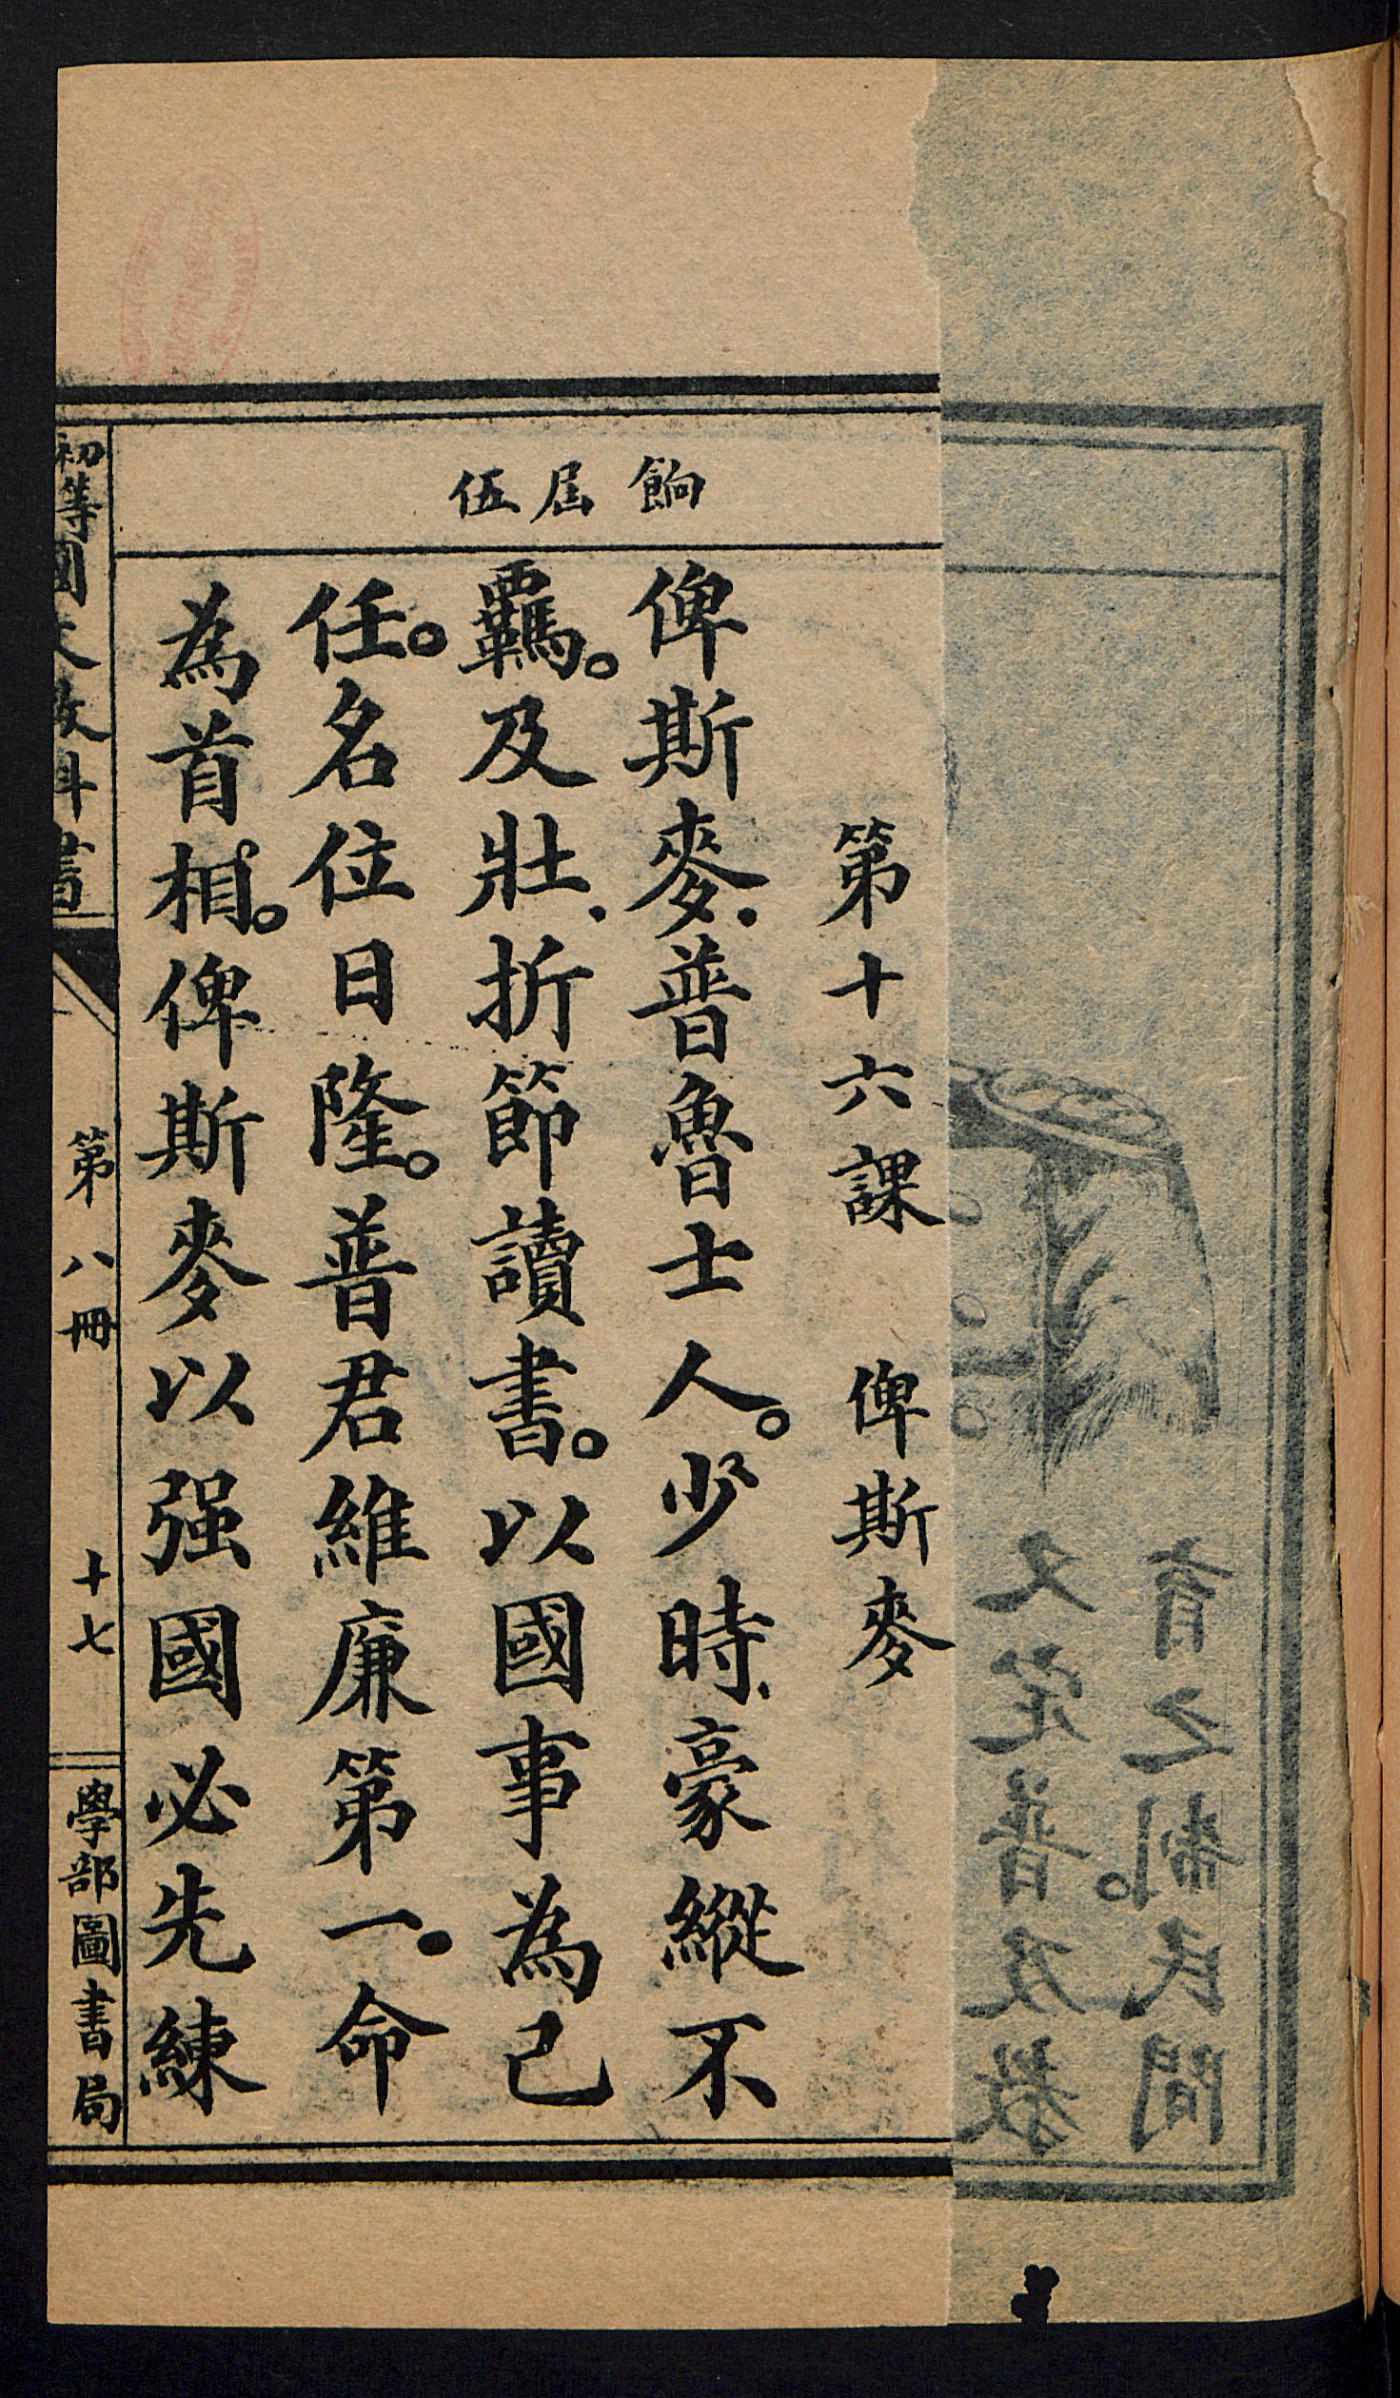 餉 屆 伍
第十六課 俾斯麥
俾斯麥.普魯士人。少時.豪縱不
羈。及壯.折節讀書。以國事為己
任。名位日隆。普君維廉第一.命
為首相。俾斯麥以强國必先練
初等國文教科書 第八冊 十七 學部圖書局
育之制。民間
又定普及教